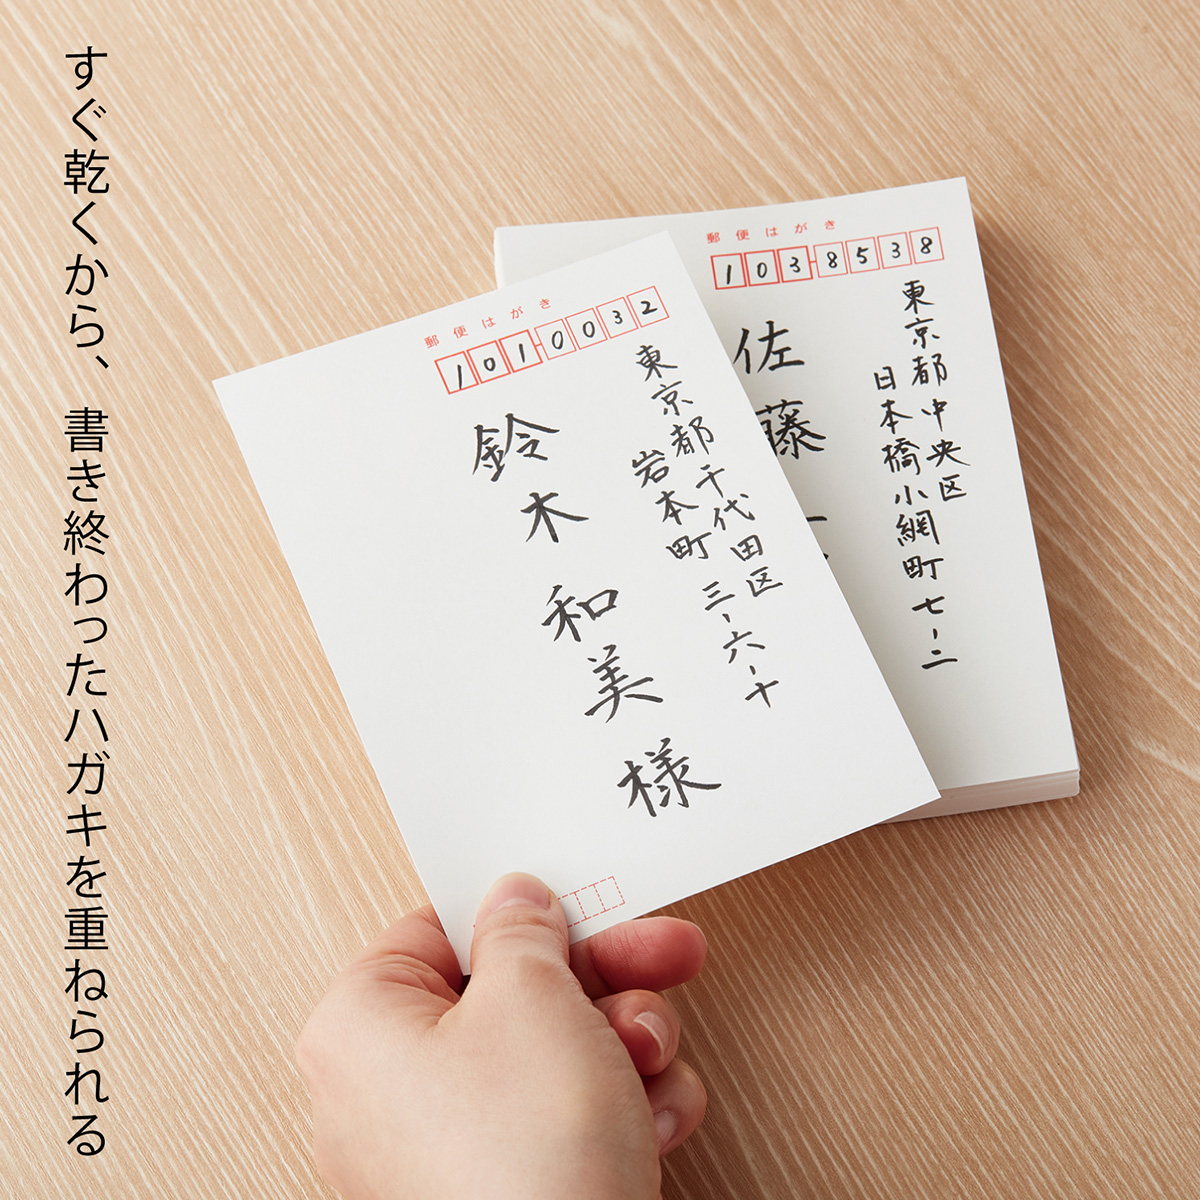 すぐ乾くから、書き終わったハガキを重ねられる
郵便はがき
1010032
東京都千代田区
岩本町 三-六-十
鈴木 和美 様
郵便はがき
1038538
東京都中央区
日本橋小網町 七-二
佐藤